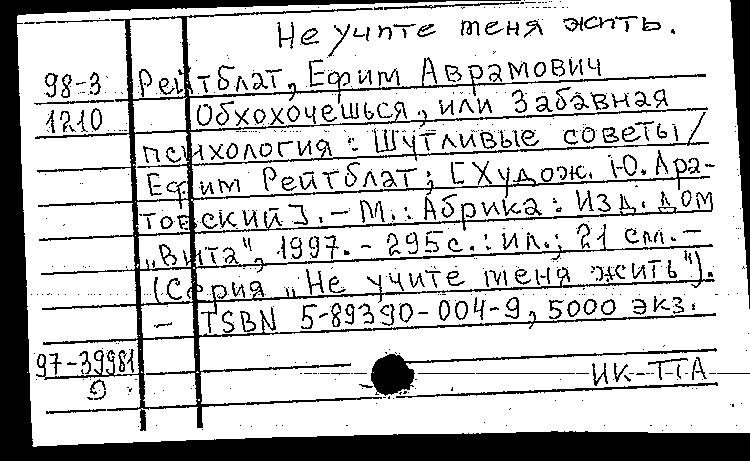 Не учите меня жить.
98-3 Рейтблат, Ефим Аврамович
1210 Обхохочешься, или Забавная
психология: Шутливые советы /
Ефим Рейтблат; [Худож. Ю. Ара-
товский]. - М.: Абрика: Изд. дом
„Вита", 1997. - 295 с.: ил.; 21 см. -
(Серия „Не учите меня жить").
- ISBN 5-89390-004-9, 5000 экз.
97-39981
ИК-ТТА